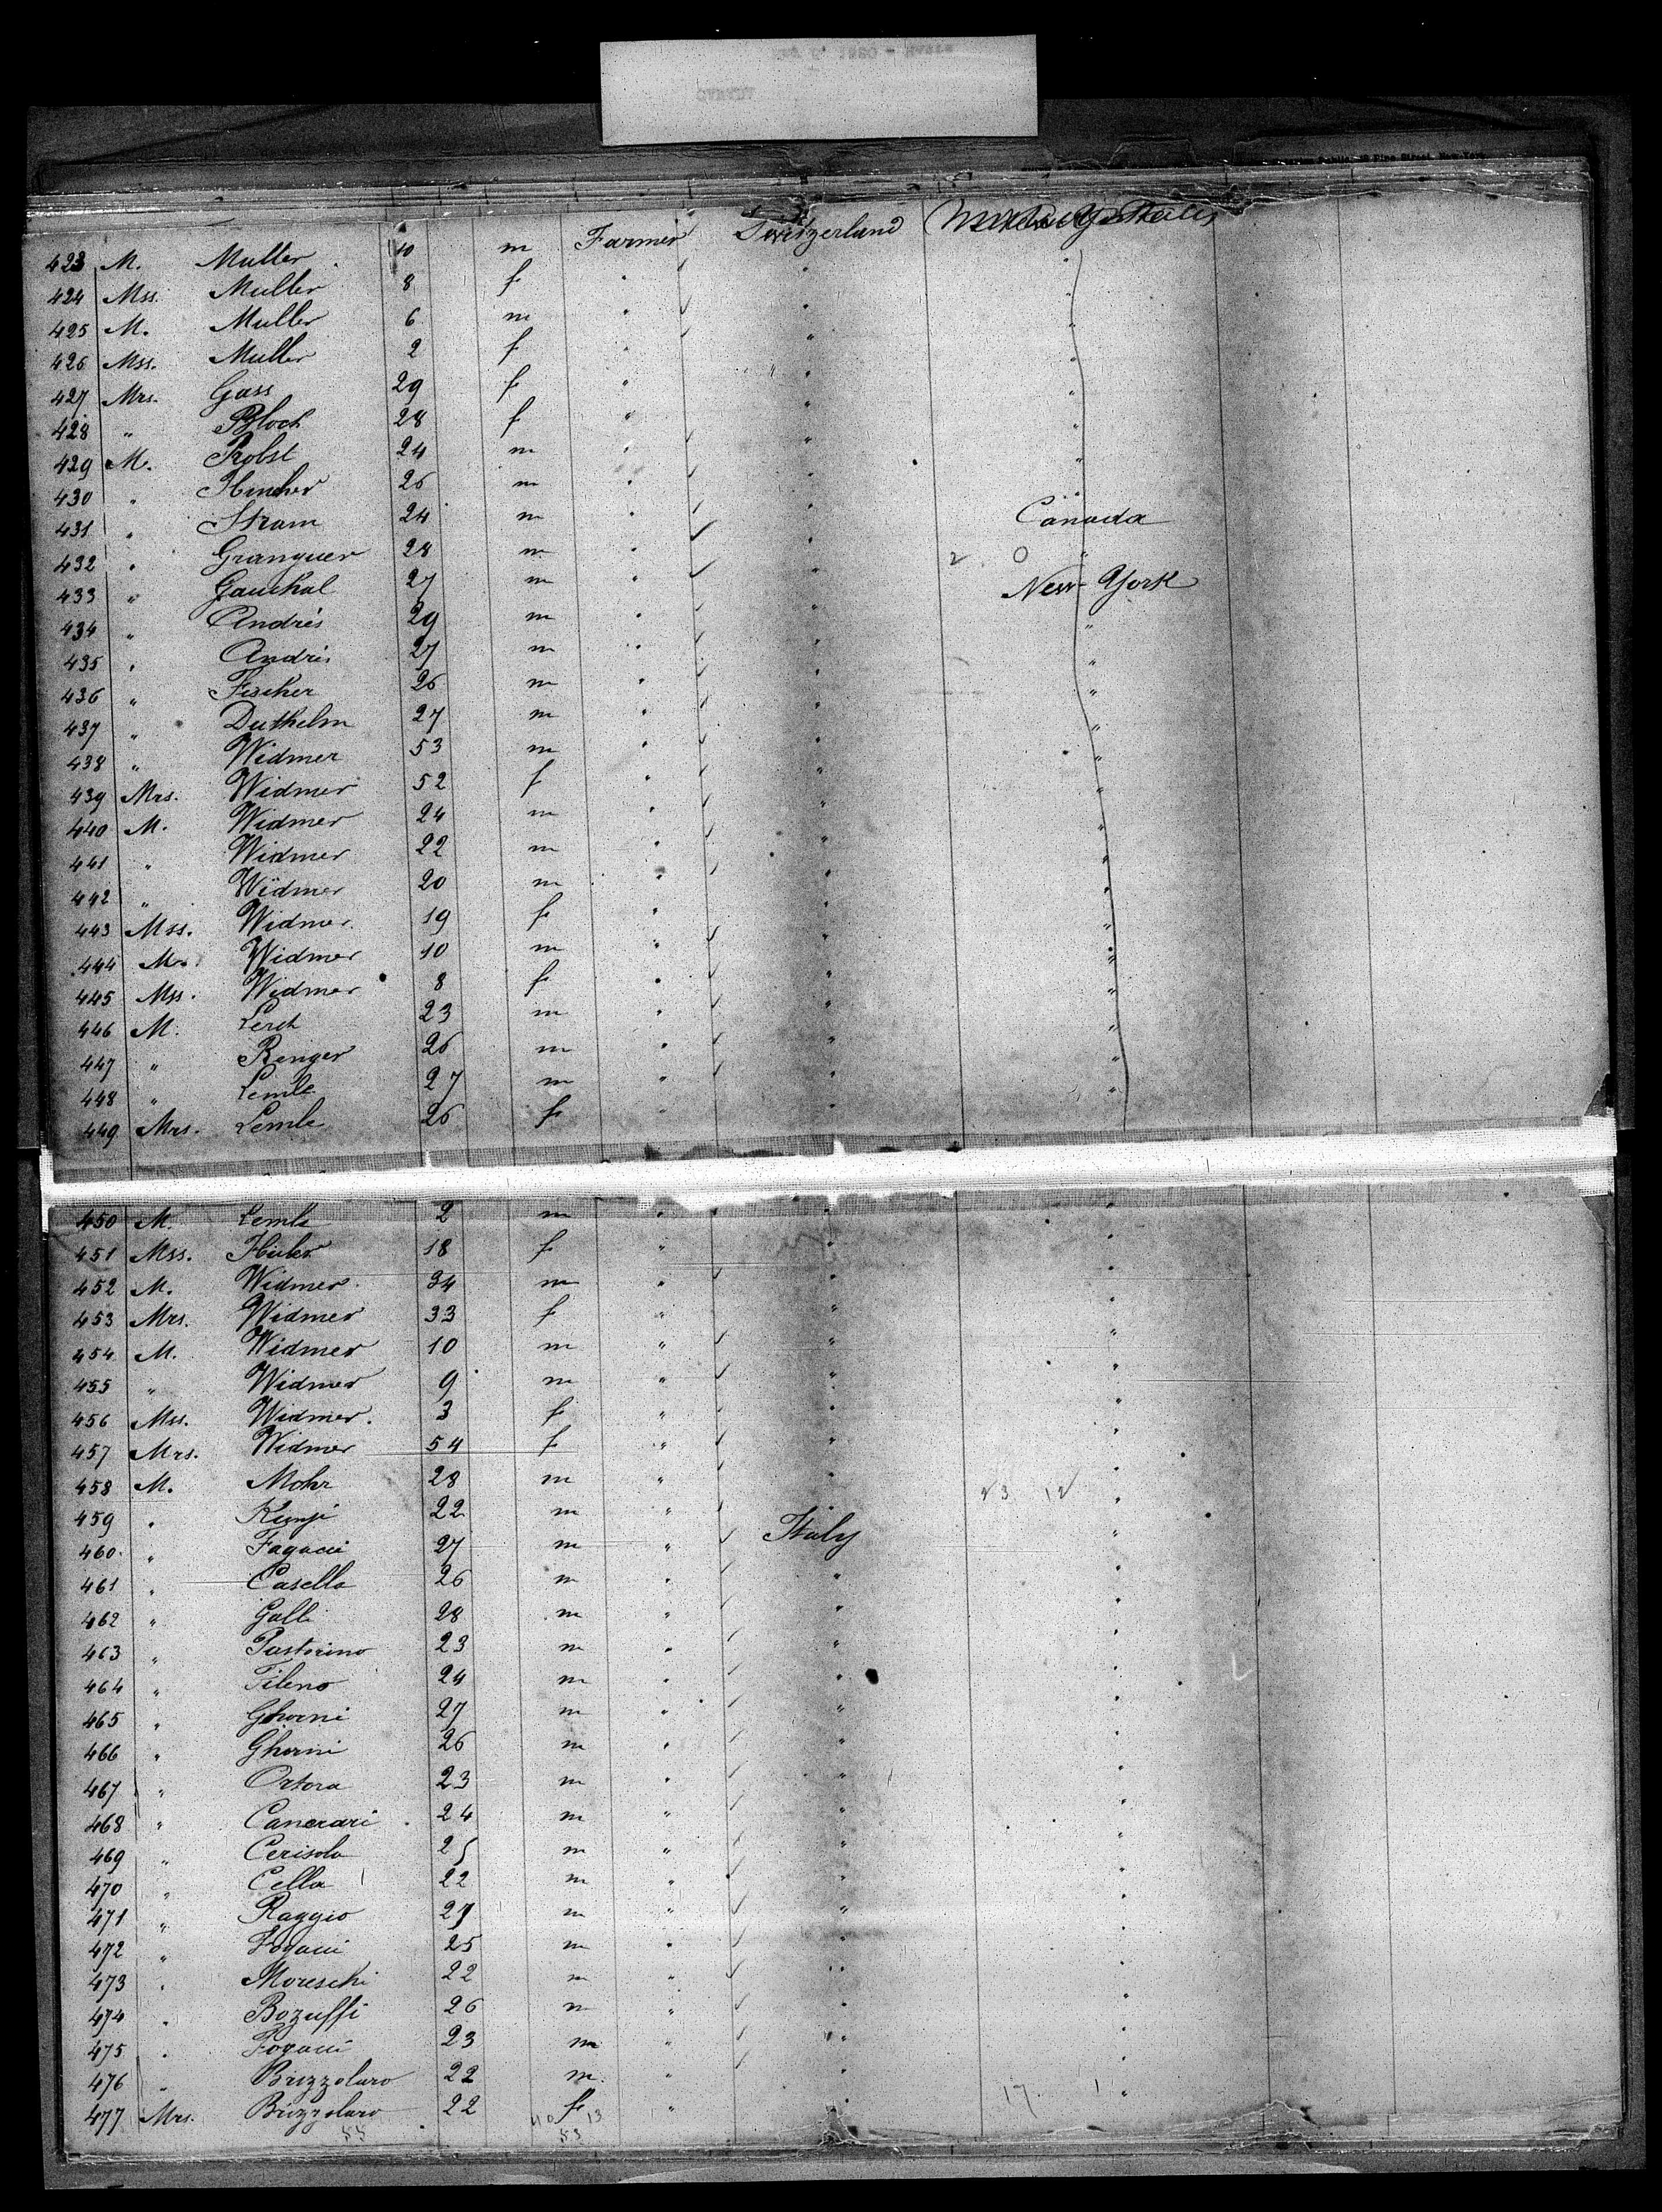 Notaries Public, 16 Pine Street, New-York
423 M. Muller 10 m Farmer Switzerland
424 Mss. Muller 8 f " "
425 M. Muller 6 m " " "
426 Mss. Muller 2 f " " "
427 Mrs. Gass 29 f " " "
428 " Bloch 28 f " " "
429 M. Probst 24 m " " "
430 " 26 m " " "
431 " Stram 24 m " " Canada
432 " Granguer 28 m " " "
433 " Gauchal 27 m " " New-York
434 " Andrés 29 m " " "
435 " Andrés 27 m " " "
436 " Fischer 26 m " " "
437 " Duthelm 27 m " " "
438 " Widmer 53 m " " "
439 Mrs. Widmer 52 f " " "
440 M. Widmer 24 m " " "
441 " Widmer 22 m " " "
442 " Widmer 20 m " " "
443 Mss. Widmer 19 f " " "
444 M. Widmer 10 m " " "
445 Mss. Widmer 8 f " " "
446 M. Lerch 23 m " " "
447 " Renger 26 m " " "
448 " Lemle 27 m " " "
449 Mrs. Lemle 26 f " "
450 M. Lemle 2 m " " "
451 Mss. Huber 18 f " " "
452 M. Widmer 34 m " " "
453 Mrs. Widmer 33 f " " "
454 M. Widmer 10 m " " "
455 " Widmer 9 m " " "
456 Mss. Widmer 3 f " " "
457 Mrs. Widmer 54 f " " "
458 M. Mohr 28 m " " "
459 " 22 m " "
460 " Fagacci 27 m " Italy "
461 " Casella 26 m " " "
462 " Galli 28 m " " "
463 " Pastorino 23 m " " "
464 " Fileno 24 m " " "
465 " Ghorni 27 m " " "
466 " Ghorni 26 m " " "
467 " Ortora 23 m " " "
468 " Canerari 24 m " " "
469 " Cerisola 25 m " " "
470 " Cella 22 m " " "
471 " Raggio 27 m " " "
472 " Fogacci 25 m " " "
473 " Moreschi 22 m " " "
474 " Bozuffi 26 m " " "
475 " Fogacci 23 m " " "
476 " Brizzolaro 22 m " " "
477 Mrs. Brizzolaro 22 f " "